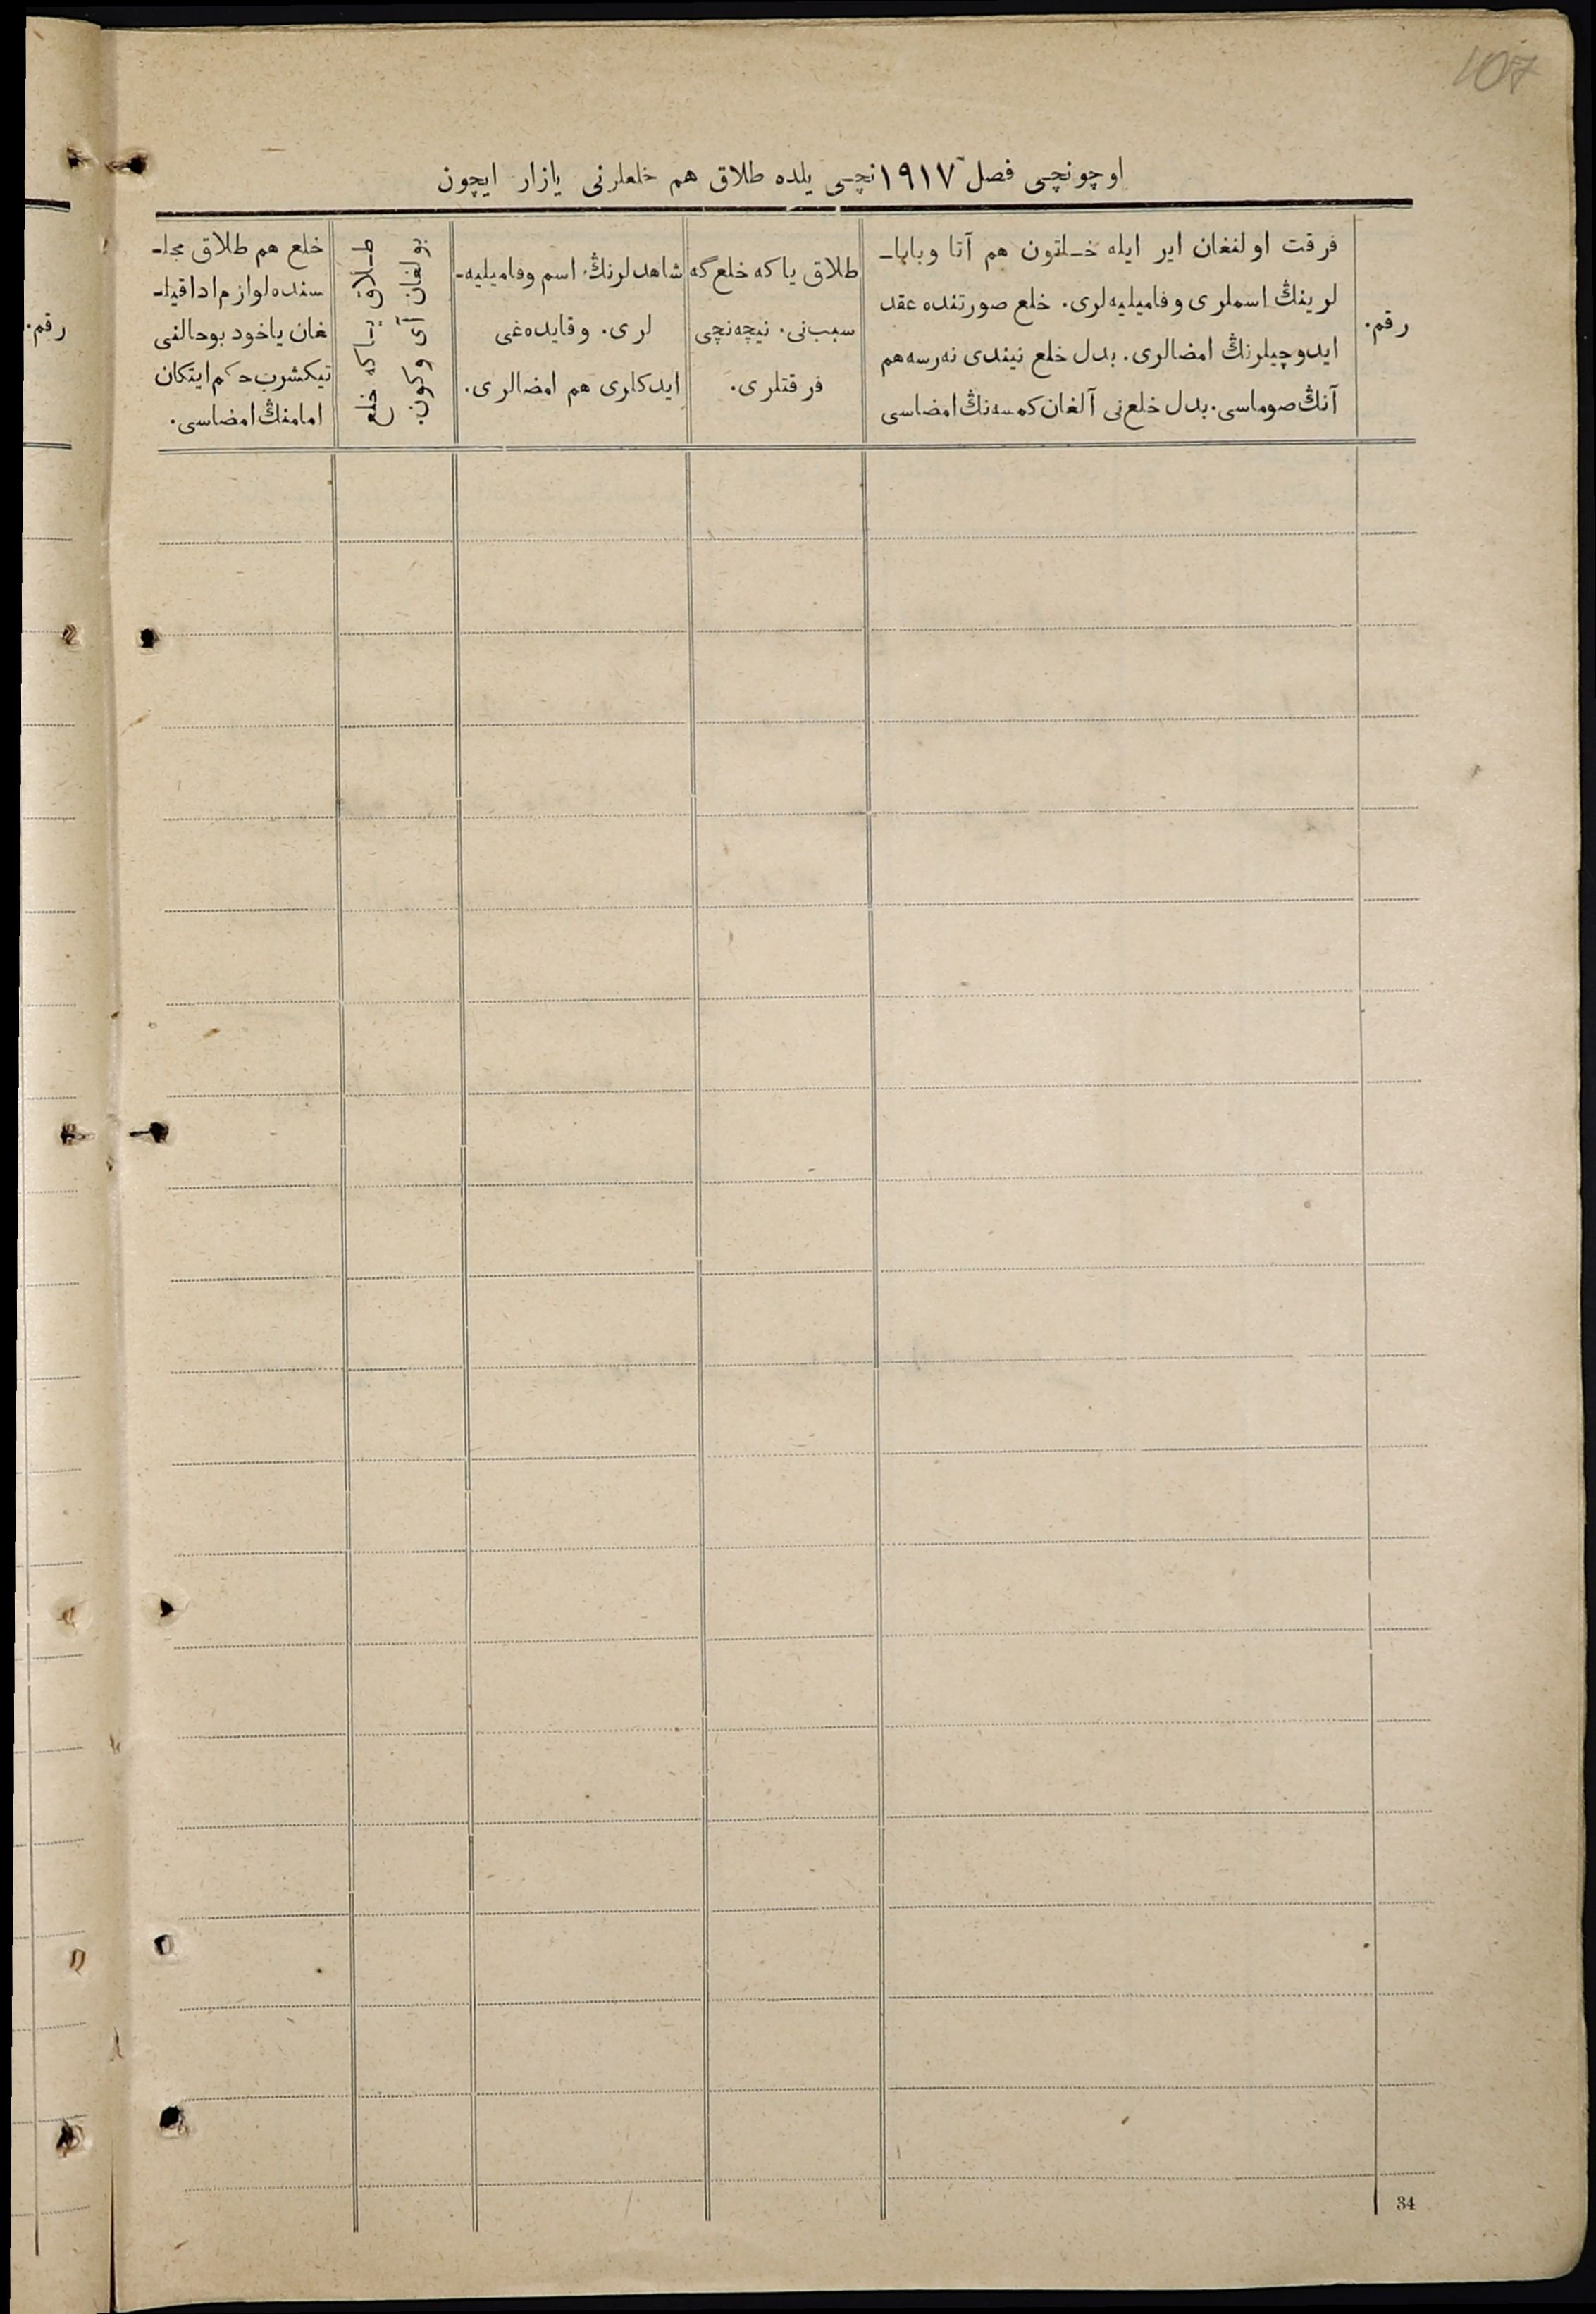 107
اوچونچی فصل ١٩١٧ نچی یلده طلاق هم خلعلرنی یازار ایچون
رقم.
فرقت اولنغان ایر ایله خاتون هم آتا وبابا-
لرینڭ اسملری وفامیلیه‌لری. خلع صورتنده عقد
ایدوچیلرنڭ امضالری. بدل خلع نیندی نه‌رسه هم
آنڭ صوماسی. بدل خلع‌نی آلغان کمسه‌نڭ امضاسی
طلاق یاکه خلع‌گه
سبب‌نی. نیچه‌نچی
فرقتلری.
شاهدلرنڭ اسم وفامیلیه-
لری. وقایده‌غی
ایدکلری هم امضالری.
طلاق یاکه خلع
بولغان آی وکون.
خلع هم طلاق مجلـ
سنده لوازم ادا قیلـ
غان یاخود بوحالنی
تیکشرب حکم ایتکان
امامنڭ امضاسی.
رقم.
34